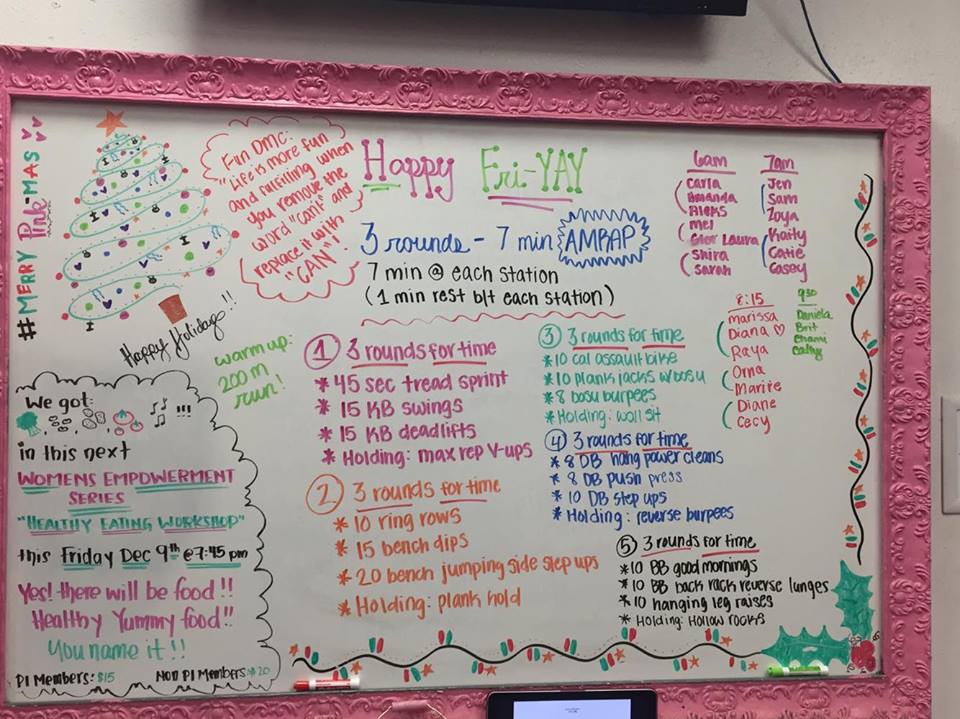 #MERRY Pink-MAS
Fun DMC:
"Life is more fun
and fulfilling when
you remove the
word "cant" and
replace it with
"CAN"!
Happy Holidays!!
Happy Fri-YAY
3 rounds - 7 min AMRAP
7 min @ each station
(1 min rest b/t each station)
warm up:
200 m
run!
① 3 rounds for time
* 45 sec tread sprint
* 15 KB swings
* 15 KB deadlifts
* Holding: max rep V-ups
② 3 rounds for time
* 10 ring rows
* 15 bench dips
* 20 bench jumping side step ups
* Holding: plank hold
③ 3 rounds for time
* 10 cal assault bike
* 10 plank jacks w/bosu
* 8 bosu burpees
* Holding: wall sit
④ 3 rounds for time
* 8 DB hang power cleans
* 8 DB push press
* 10 DB step ups
* Holding: reverse burpees
⑤ 3 rounds for time
* 10 BB good mornings
* 10 BB back rack reverse lunges
* 10 hanging leg raises
* Holding: Hollow rocks
6am
Carla
Amanda
Aleks
Mel
Laura
Shira
Sarah
7am
Jen
Sam
Zoya
Kaity
Catie
Casey
8:15
Marissa
Diana ♡
Raya
Orna
Marite
Diane
Cecy
930
Daniela
Brit
Cathy
We got:
!!!
in this next
WOMENS EMPOWERMENT
SERIES
"HEALTHY EATING WORKSHOP"
this Friday Dec 9th @ 7:45 pm
Yes! there will be food!!
Healthy Yummy food!!
You name it!!
PI Members: $15
Non PI Members: $20